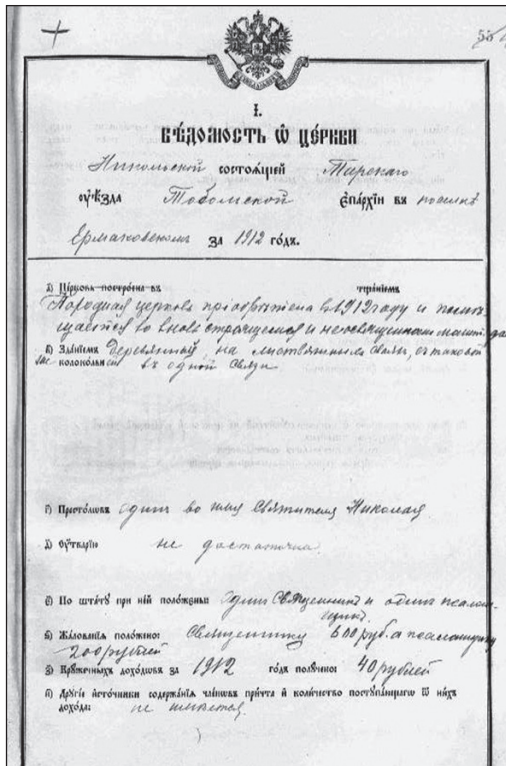 55
І.
ВѢДОМОСТЬ Ѡ ЦЕРКВИ
Никольской состоѧщей Тарскаго
оуѣзда Тобольской єпархїи въ поселкѣ
Ермаковском за 1912 годъ.
а҃) Церковь построена въ тщанїемъ
Походная церковь пріобрѣтена въ 1912 году и помѣ-
щается во вновь строющемся и неосвященном
в҃) Зданїемъ Деревянный на лиственныхъ съ таковой
же колокольней въ одной связи
г҃) Престолѡвъ один во имя Святителя Николая
д҃) Оутварїю не достаточна
є҃) По штатꙋ при ней положены один Священник и один псалом-
щик.
ѕ҃) Жалованїѧ положено: Священнику 600 руб. а псаломщику
200 рублей
з҃) Крꙋжечныхъ доходѡвъ за 1912 годъ полꙋчено: 40 рублей
и҃) Дрꙋгїе источники содержанїѧ членѡвъ причта и количество постꙋпающаго ѿ нихъ
дохода: не имѣется.